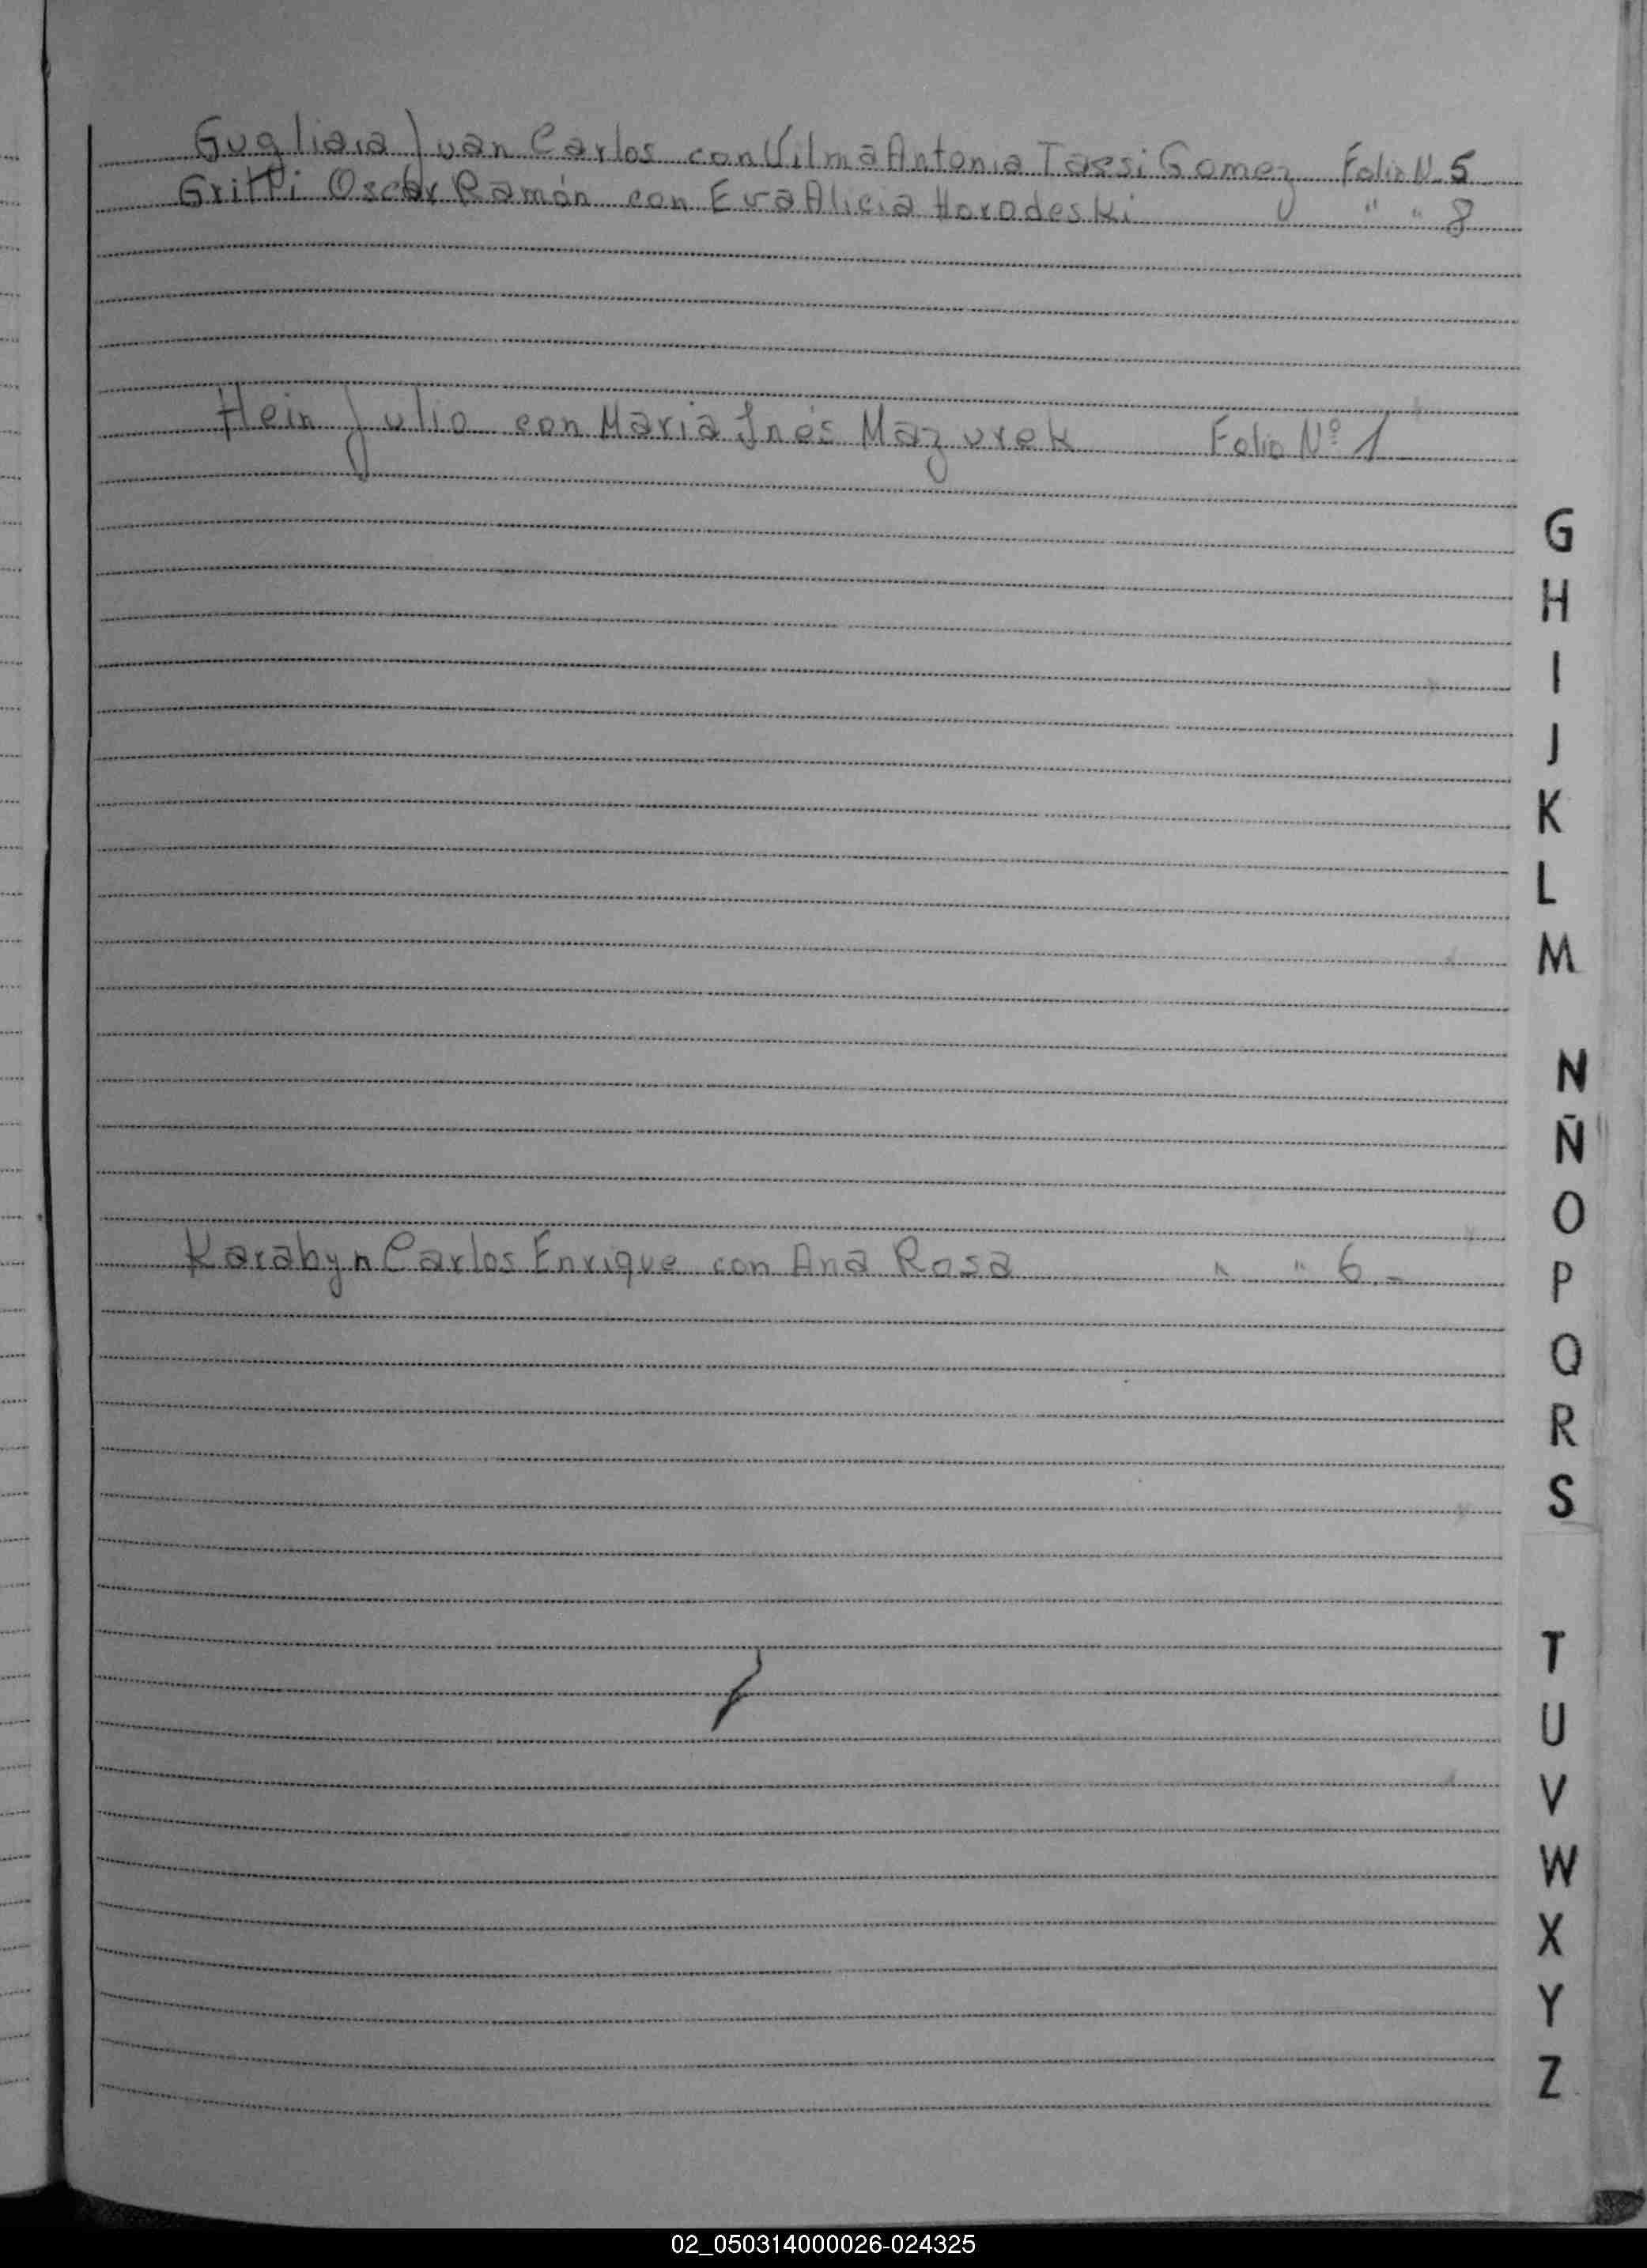 Gugliara Juan Carlos con Vilma Antonia Tassi Gomez Folio N. 5
Gritti Oscar Ramón con Eva Alicia Horodeski " " 8
Hein Julio con Maria Inés Mazurek Folio Nº 1
G
H
I
J
K
L
M
N
Ñ
O
Karabyn Carlos Enrique con Ana Rosa " " 6.-
P
Q
R
S
T
U
V
W
X
Y
Z
02_050314000026-024325